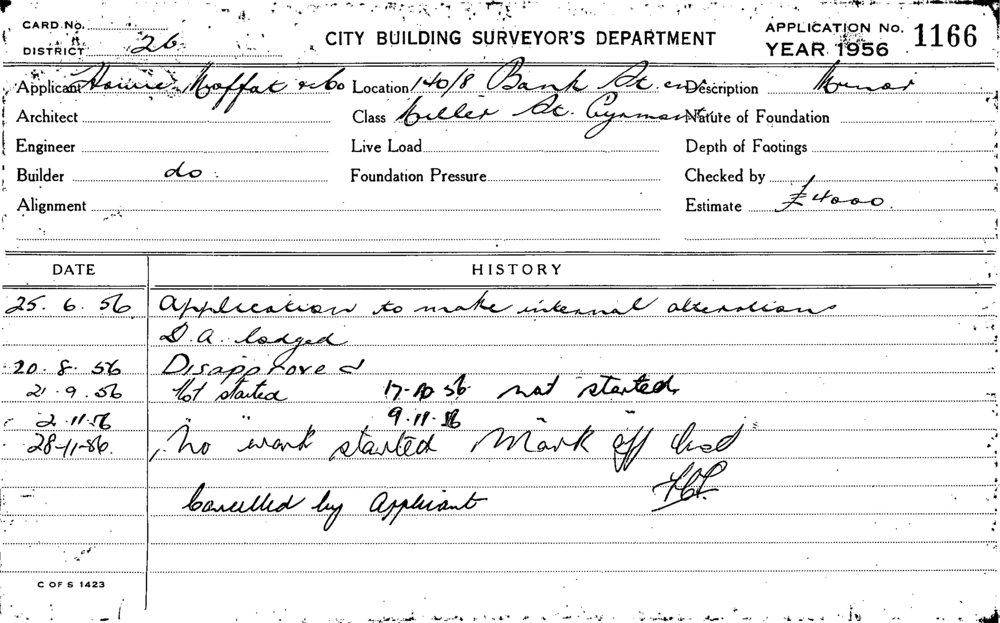 CARD No.
DISTRICT 26
CITY BUILDING SURVEYOR'S DEPARTMENT
APPLICATION No. 1166
YEAR 1956
Applicant Howie Moffat & Co Location 140/8 Bank St. cnr Description Minor
Architect Class Miller St. Pyrmont Nature of Foundation
Engineer Live Load Depth of Footings
Builder do. Foundation Pressure Checked by
Alignment Estimate £4000.
DATE HISTORY
25. 6. 56 Application to make internal alterations
D.A. lodged
20. 8. 56 Disapproved
21. 9. 56 Not started 17-10 56 not started.
2.11.56 " " 9.11.56
28-11-56. No work started Mark off
Cancelled by Applicant
C OF S 1423